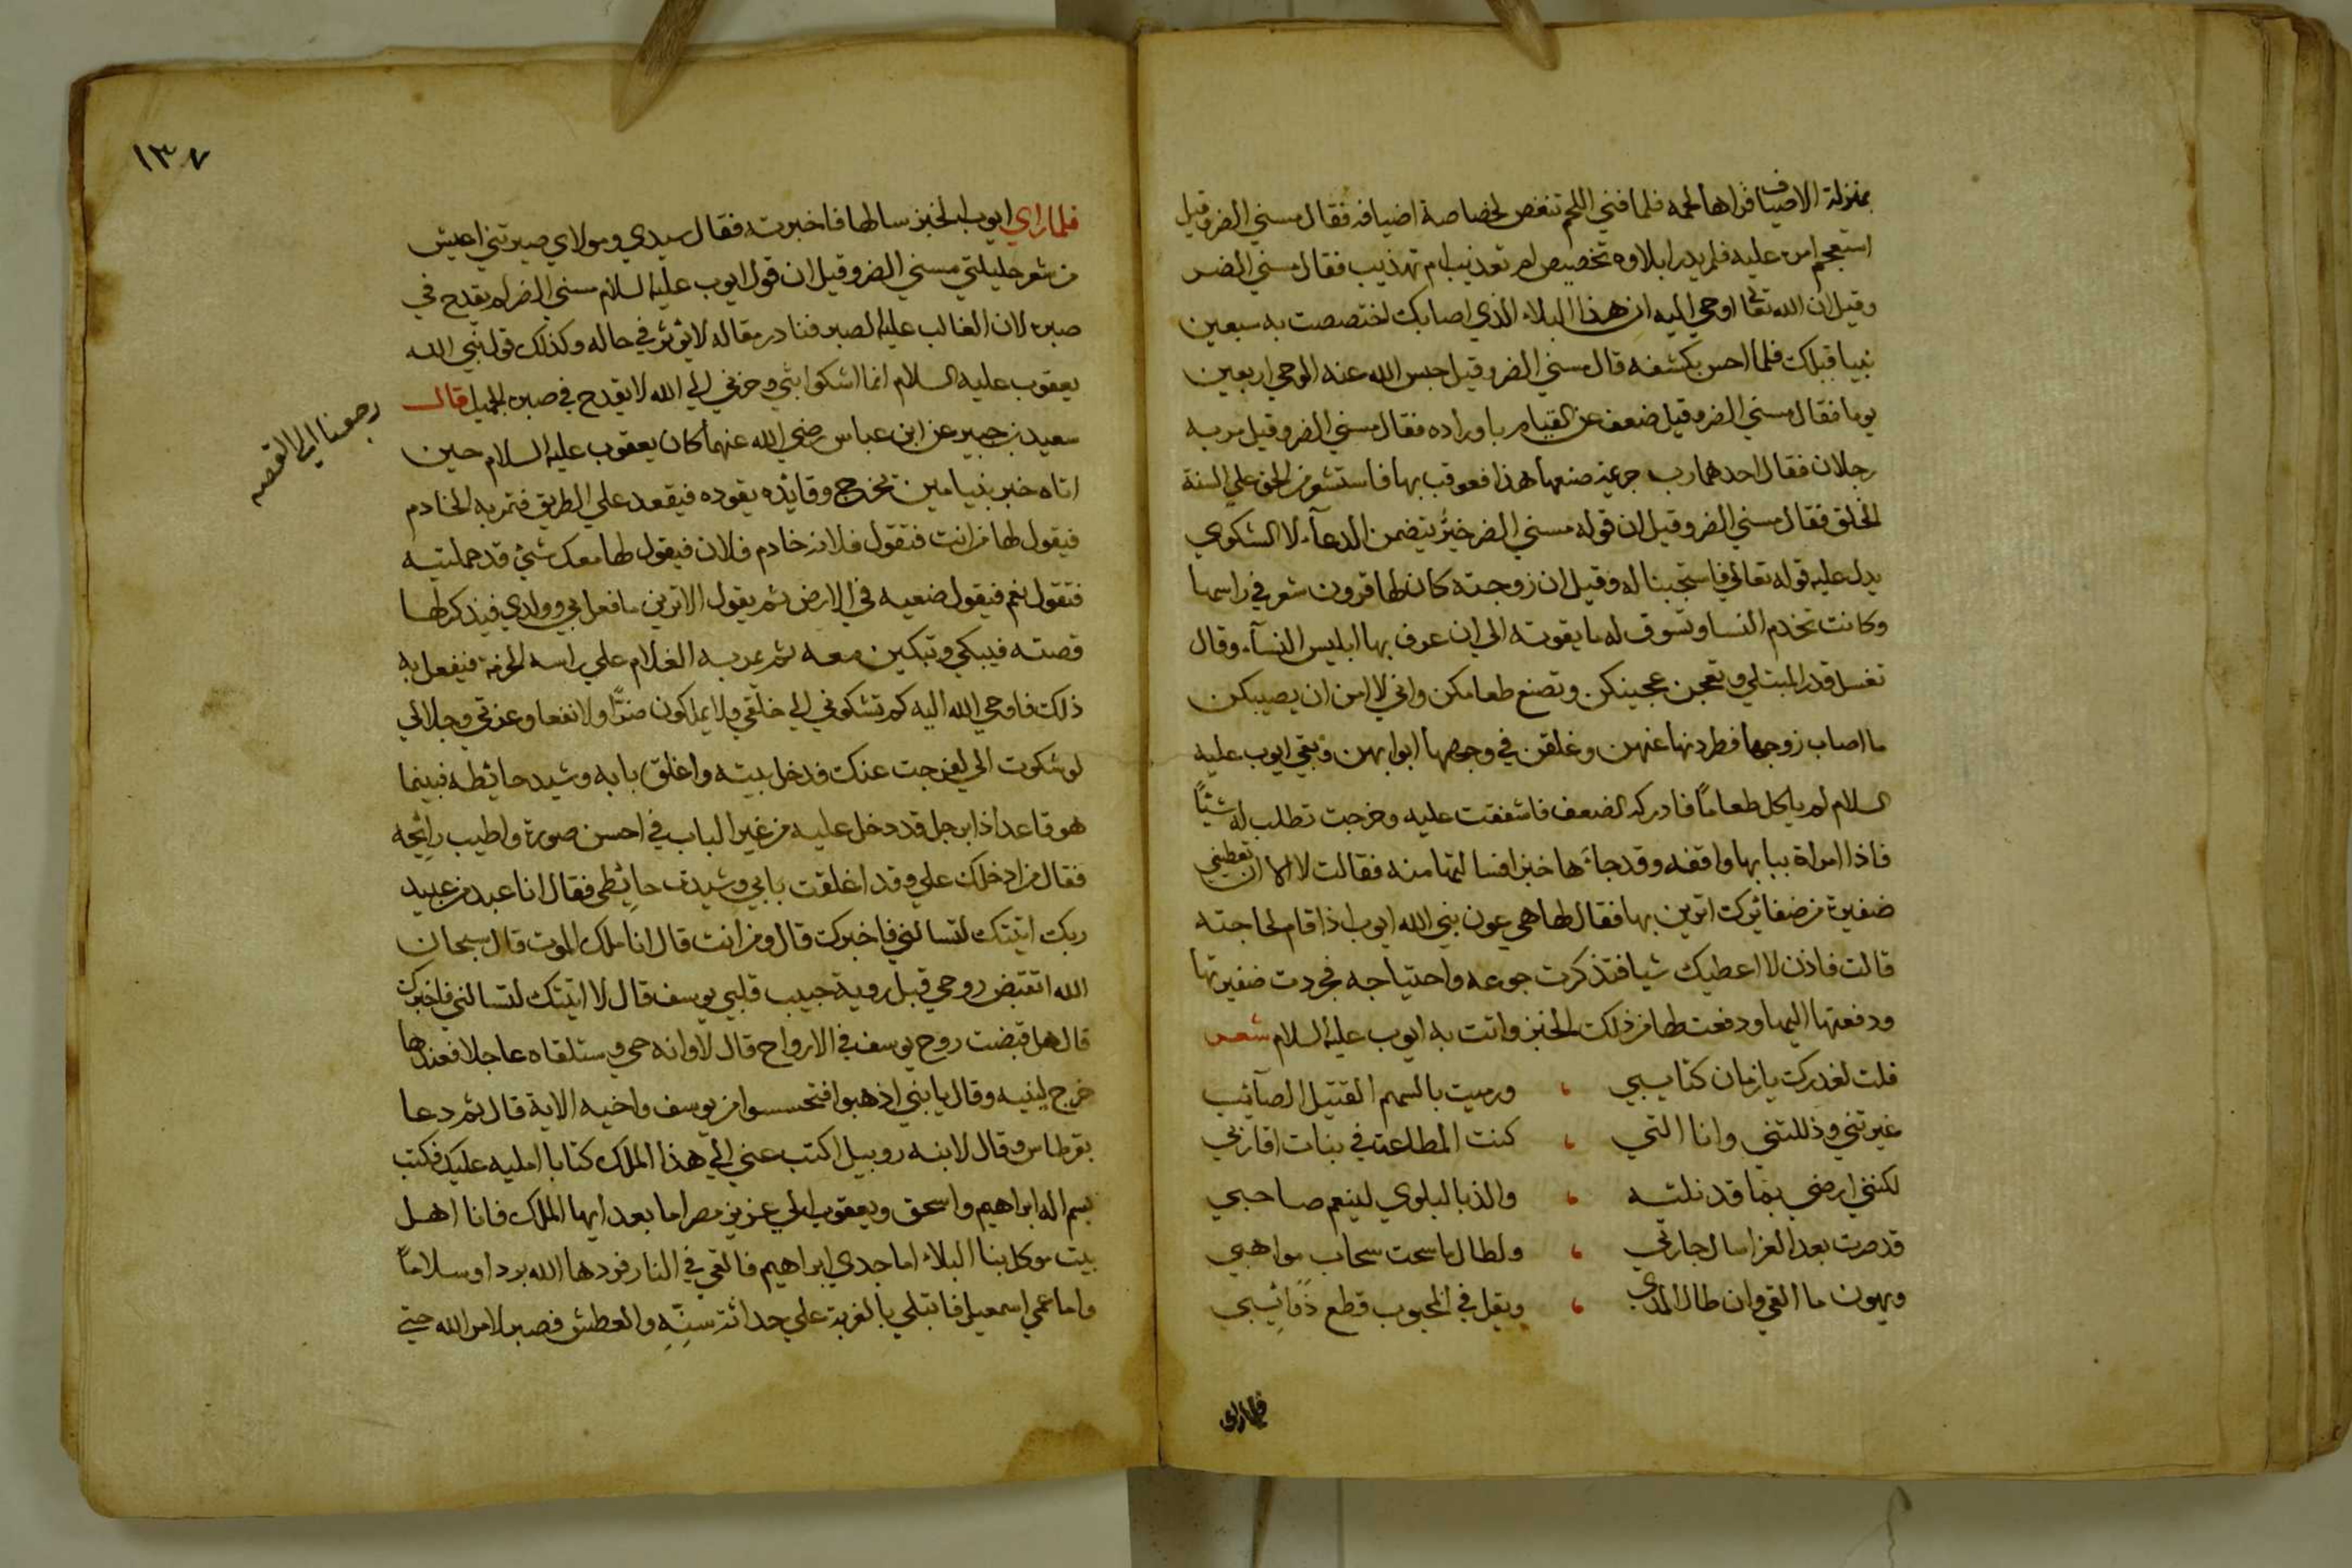 بمنزلة الاضياف فراها لحمه فلما فني اللحم تنغص لخصاصة اضيافه فقال مسني الضر وقيل
استعجم امره عليه فلم يدر ابلاوه تخصيص ام تعذيب ام تهذيب فقال مسني الضر
وقيل ان الله تعالى اوحي اليه ان هذا البلاء الذي اصابك اختصصت به سبعين
نبيا قبلك فلما احس بكشفه قال مسني الضر وقيل حبس الله عنه الوحي اربعين
يوما فقال مسني الضر وقيل ضعف عن القيام باوراده فقال مسني الضر وقيل مر به
رجلان فقال احدهما رب جريمة صنعها هذا فعوقب بها فاستشعر الحق علي السنة
الخلق فقال مسني الضر وقيل ان قوله مسني الضر خبر يتضمن الدعآء لا الشكوي
يدل عليه قوله تعالي فاستجبنا له وقيل ان زوجته كان لها قرون شعر في راسها
وكانت تخدم النسا وتسوق له ما يقوته الي ان عرف بها ابليس النسآء وقال
تغسل قدر المبتلي وتعجن عجينكن وتصنع طعامكن واني لا امن ان يصيبكن
ما اصاب زوجها فطردنها عنهن وغلقن في وجهها ابوابهن وبقي ايوب عليه
السلام لم ياكل طعاماً فادركه الضعف فاشفقت عليه وخرجت تطلب له شيئاً
فاذا امراة ببابها واقفه وقد جاءها خبز افسالتها منه فقالت لا الا ان تعطيني
ضفيرة من ضفائرك اتزين بها فقال لها هي عون نبي الله ايوب اذا قام لحاجته
قالت فاذن لا اعطيك شيا فتذكرت جوعه واحتياجه فجردت ضفيرتها
ودفعتها اليها ودفعت لها من ذلك الخبز واتت به ايوب عليه السلام شعر
فلت لغدرك يا زمان كتايبي ، ورميت بالسهم القتيل الصآئب
غيرتني وذللتني وانا التي ، كنت المطاعة في بنات اقاربي
لكنني ارضي بما قد نلته ، والذ بالبلوي لينعم صاحبي
قد صرت بعد العز اسال جارتي ، ولطال ما سحت سحاب مواهبي
ويهون ما القي وان طال المدي ، ويقل في المحبوب قطع ذوائبي
فلما راي
١٣٧
فلما راي ايوب الخبز سالها فاخبرته فقال سيدي ومولاي صيرتني اعيش
من شعر حليلتي مسني الضر وقيل ان قول ايوب عليه السلام مسني الضر لم يقدح في
صبره لان الغالب عليه الصبر فنادر مقاله لا يوثر في حاله وكذلك قول نبي الله
يعقوب عليه السلام انما اشكوا بثي وحزني الي الله لا يقدح في صبره الجميل قال
رجعنا الي القصه
سعيد بن جبير عن ابن عباس رضي الله عنهما كان يعقوب عليه السلام حين
اتاه خبر بنيامين يخرج وقايده يقوده فيقعد علي الطريق فتمر به الخادم
فيقول لها من انت فتقول فلانة خادم فلان فيقول لها معك شئ قد حملتيه
فتقول نعم فيقول ضعيه في الارض ثم يقول الا ترين ما فعل بي وولدي فيذكر لها
قصته فيبكي وتبكين معه ثم يمر به الغلام علي راسه الحزمة فيفعل به
ذلك فاوحي الله اليه كم تشكوني الي خلقي ولا يملكون ضرًّا ولا نفعا وعزتي وجلالي
لو شكوت الي لفرجت عنك فدخل بيته واغلق بابه وشيد حائطه فبينما
هو قاعد اذا برجل قد دخل عليه من غير الباب في احسن صورة واطيب رائحه
فقال من ادخلك علي وقد اغلقت بابي وشيدت حائطي فقال انا عبد من عبيد
ربك اتيتك لتسالني فاخبرك قال ومن انت قال انا ملك الموت قال سبحان
الله اتقبض روحي قبل روية حبيب قلبي يوسف قال لا اتيتك لتسالني فاخبرك
قال هل قبضت روح يوسف في الارواح قال لا وانه حي وستلقاه عاجلا فعندها
خرج لبنيه وقال يا بني اذهبوا فتحسسوا من يوسف واخيه الاية قال ثم دعا
بقرطاس وقال لابنه روبيل اكتب عني الي هذا الملك كتابا امليه عليك فكتب
بسم اله ابراهيم واسحق ويعقوب الي عزيز مصر اما بعد ايها الملك فانا اهل
بيت موكل بنا البلاء اما جدي ابراهيم فالقي في النار فردها الله بردا وسلاماً
واما عمي اسمعيل فابتلي بالغربة علي حداثة سنّه والعطش فصبر لامر الله حتي